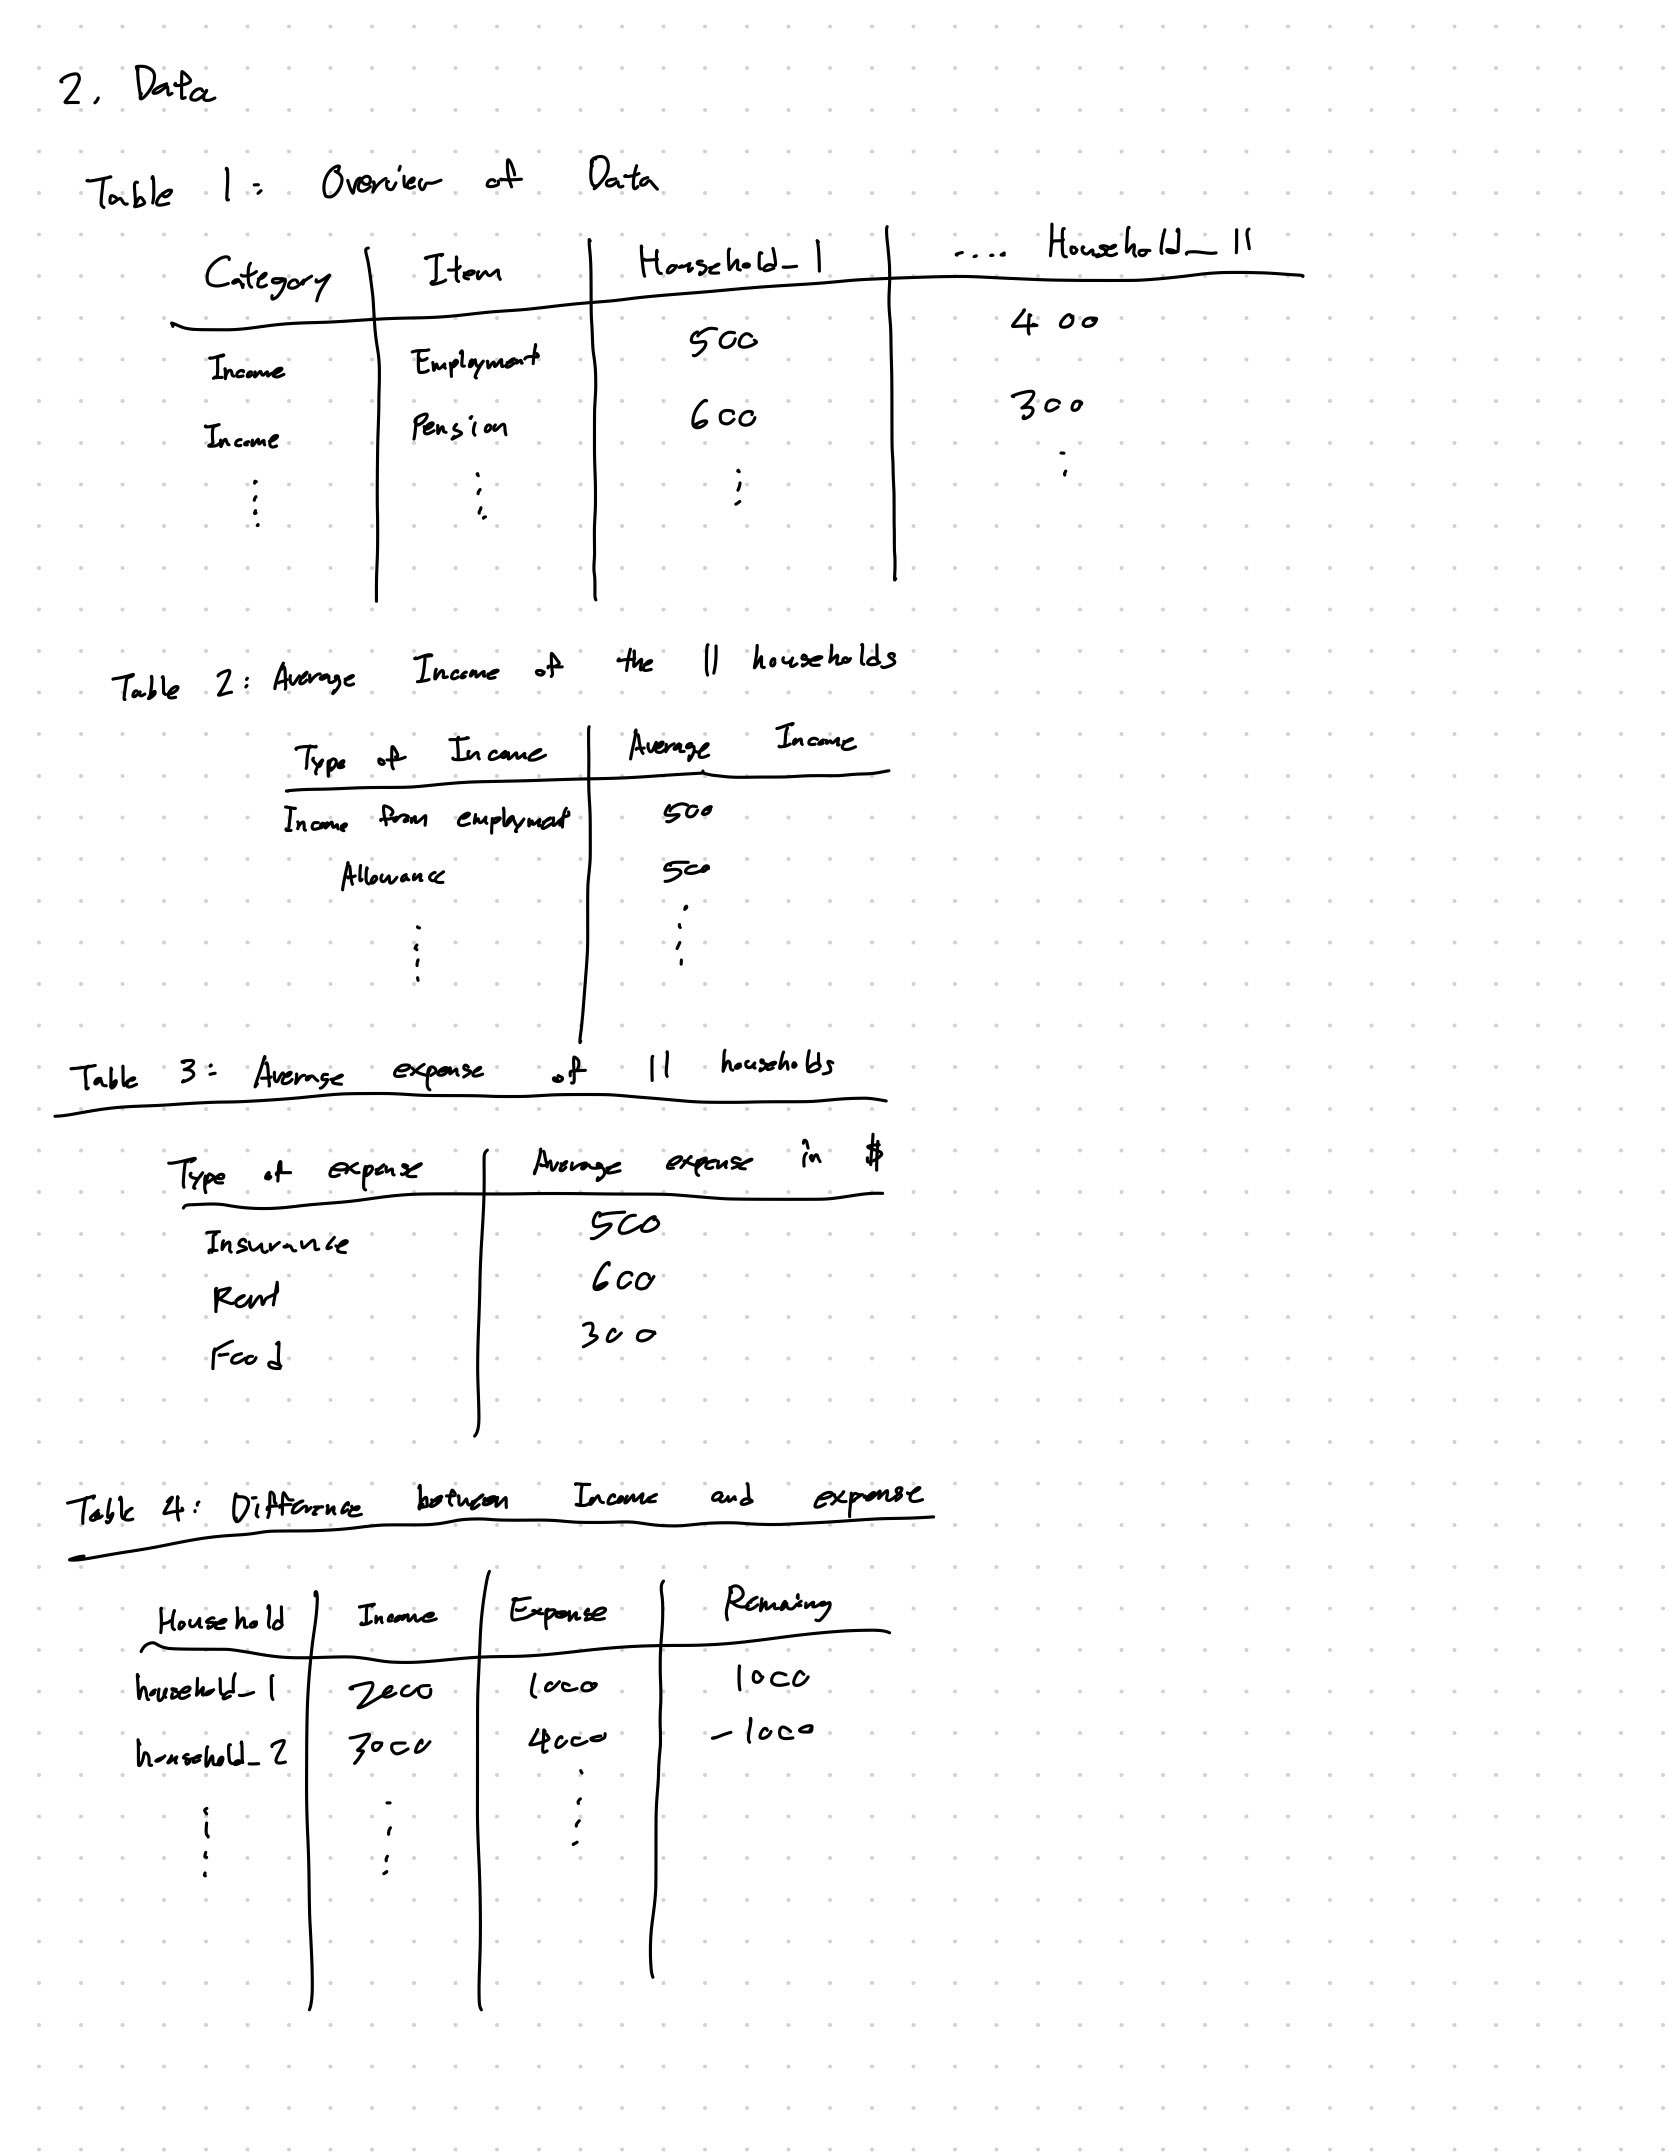 2. Data
Table 1: Overview of Data
Category Item Household_1 .... Household_11
Income Employment 500 400
Income Pension 600 300
Table 2: Average Income of the 11 households
Type of Income Average Income
Income from employment 500
Allowance 500
Table 3: Average expense of 11 households
Type of expense Average expense in $
Insurance 500
Rent 600
Food 300
Table 4: Difference between Income and expense
Household Income Expense Remaining
household_1 2000 1000 1000
household_2 3000 4000 -1000